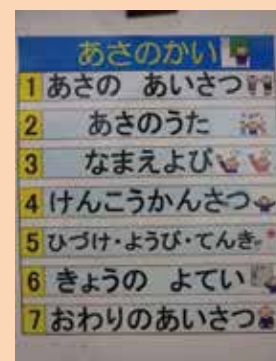 あさのかい
1 あさの あいさつ
2 あさのうた
3 なまえよび
4 けんこうかんさつ
5 ひづけ・ようび・てんき
6 きょうの よてい
7 おわりのあいさつ